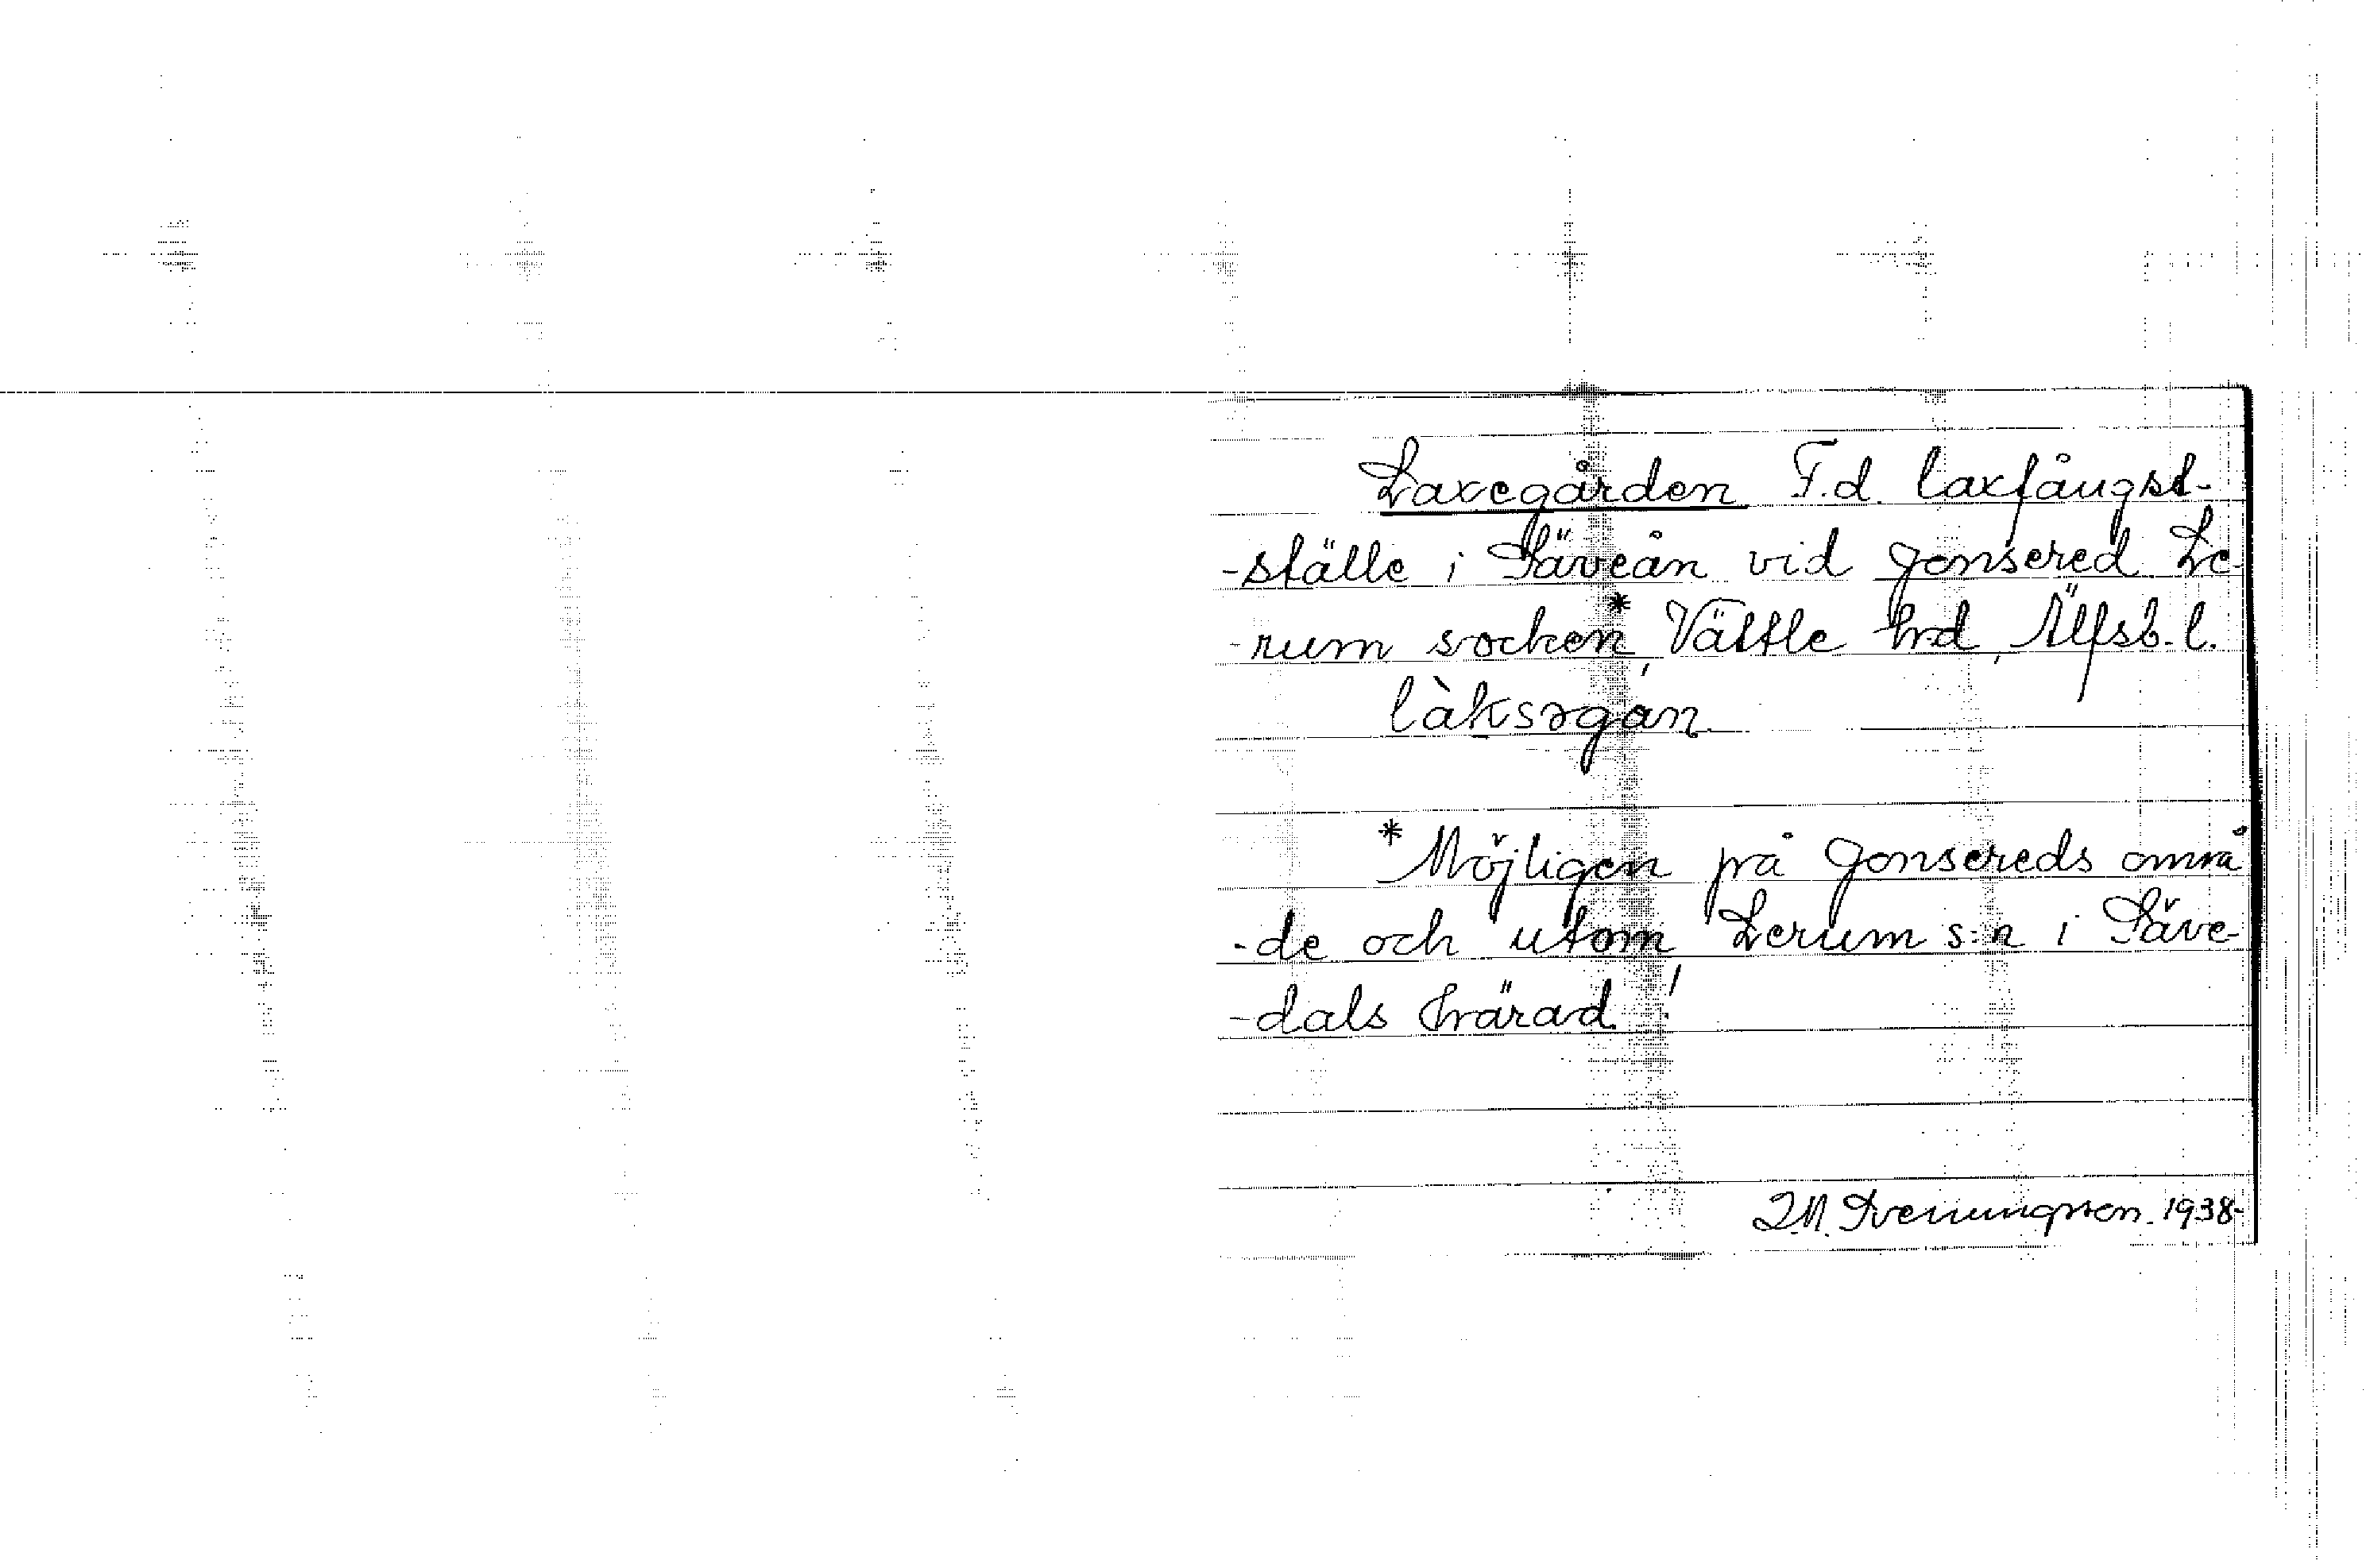 Laxegården F.d. laxfångst-
-ställe i Säveån vid Jonsered Le-
-rum socken*, Vättle hrd, Älfsb. l.
làksəgán
*Möjligen på Jonsereds områ
-de och utom Lerum s:n i Säve-
-dals härad!
1938